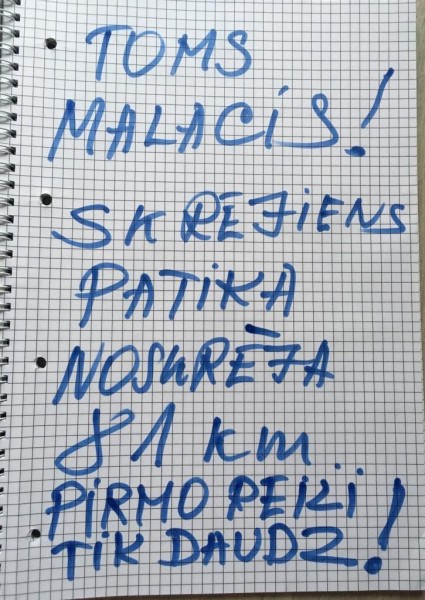 TOMS
MALACiS!
SKREJiENS
PATiKA
NOSKRĒJA
81 km
PiRMO REiZi
TiK DAUDZ!